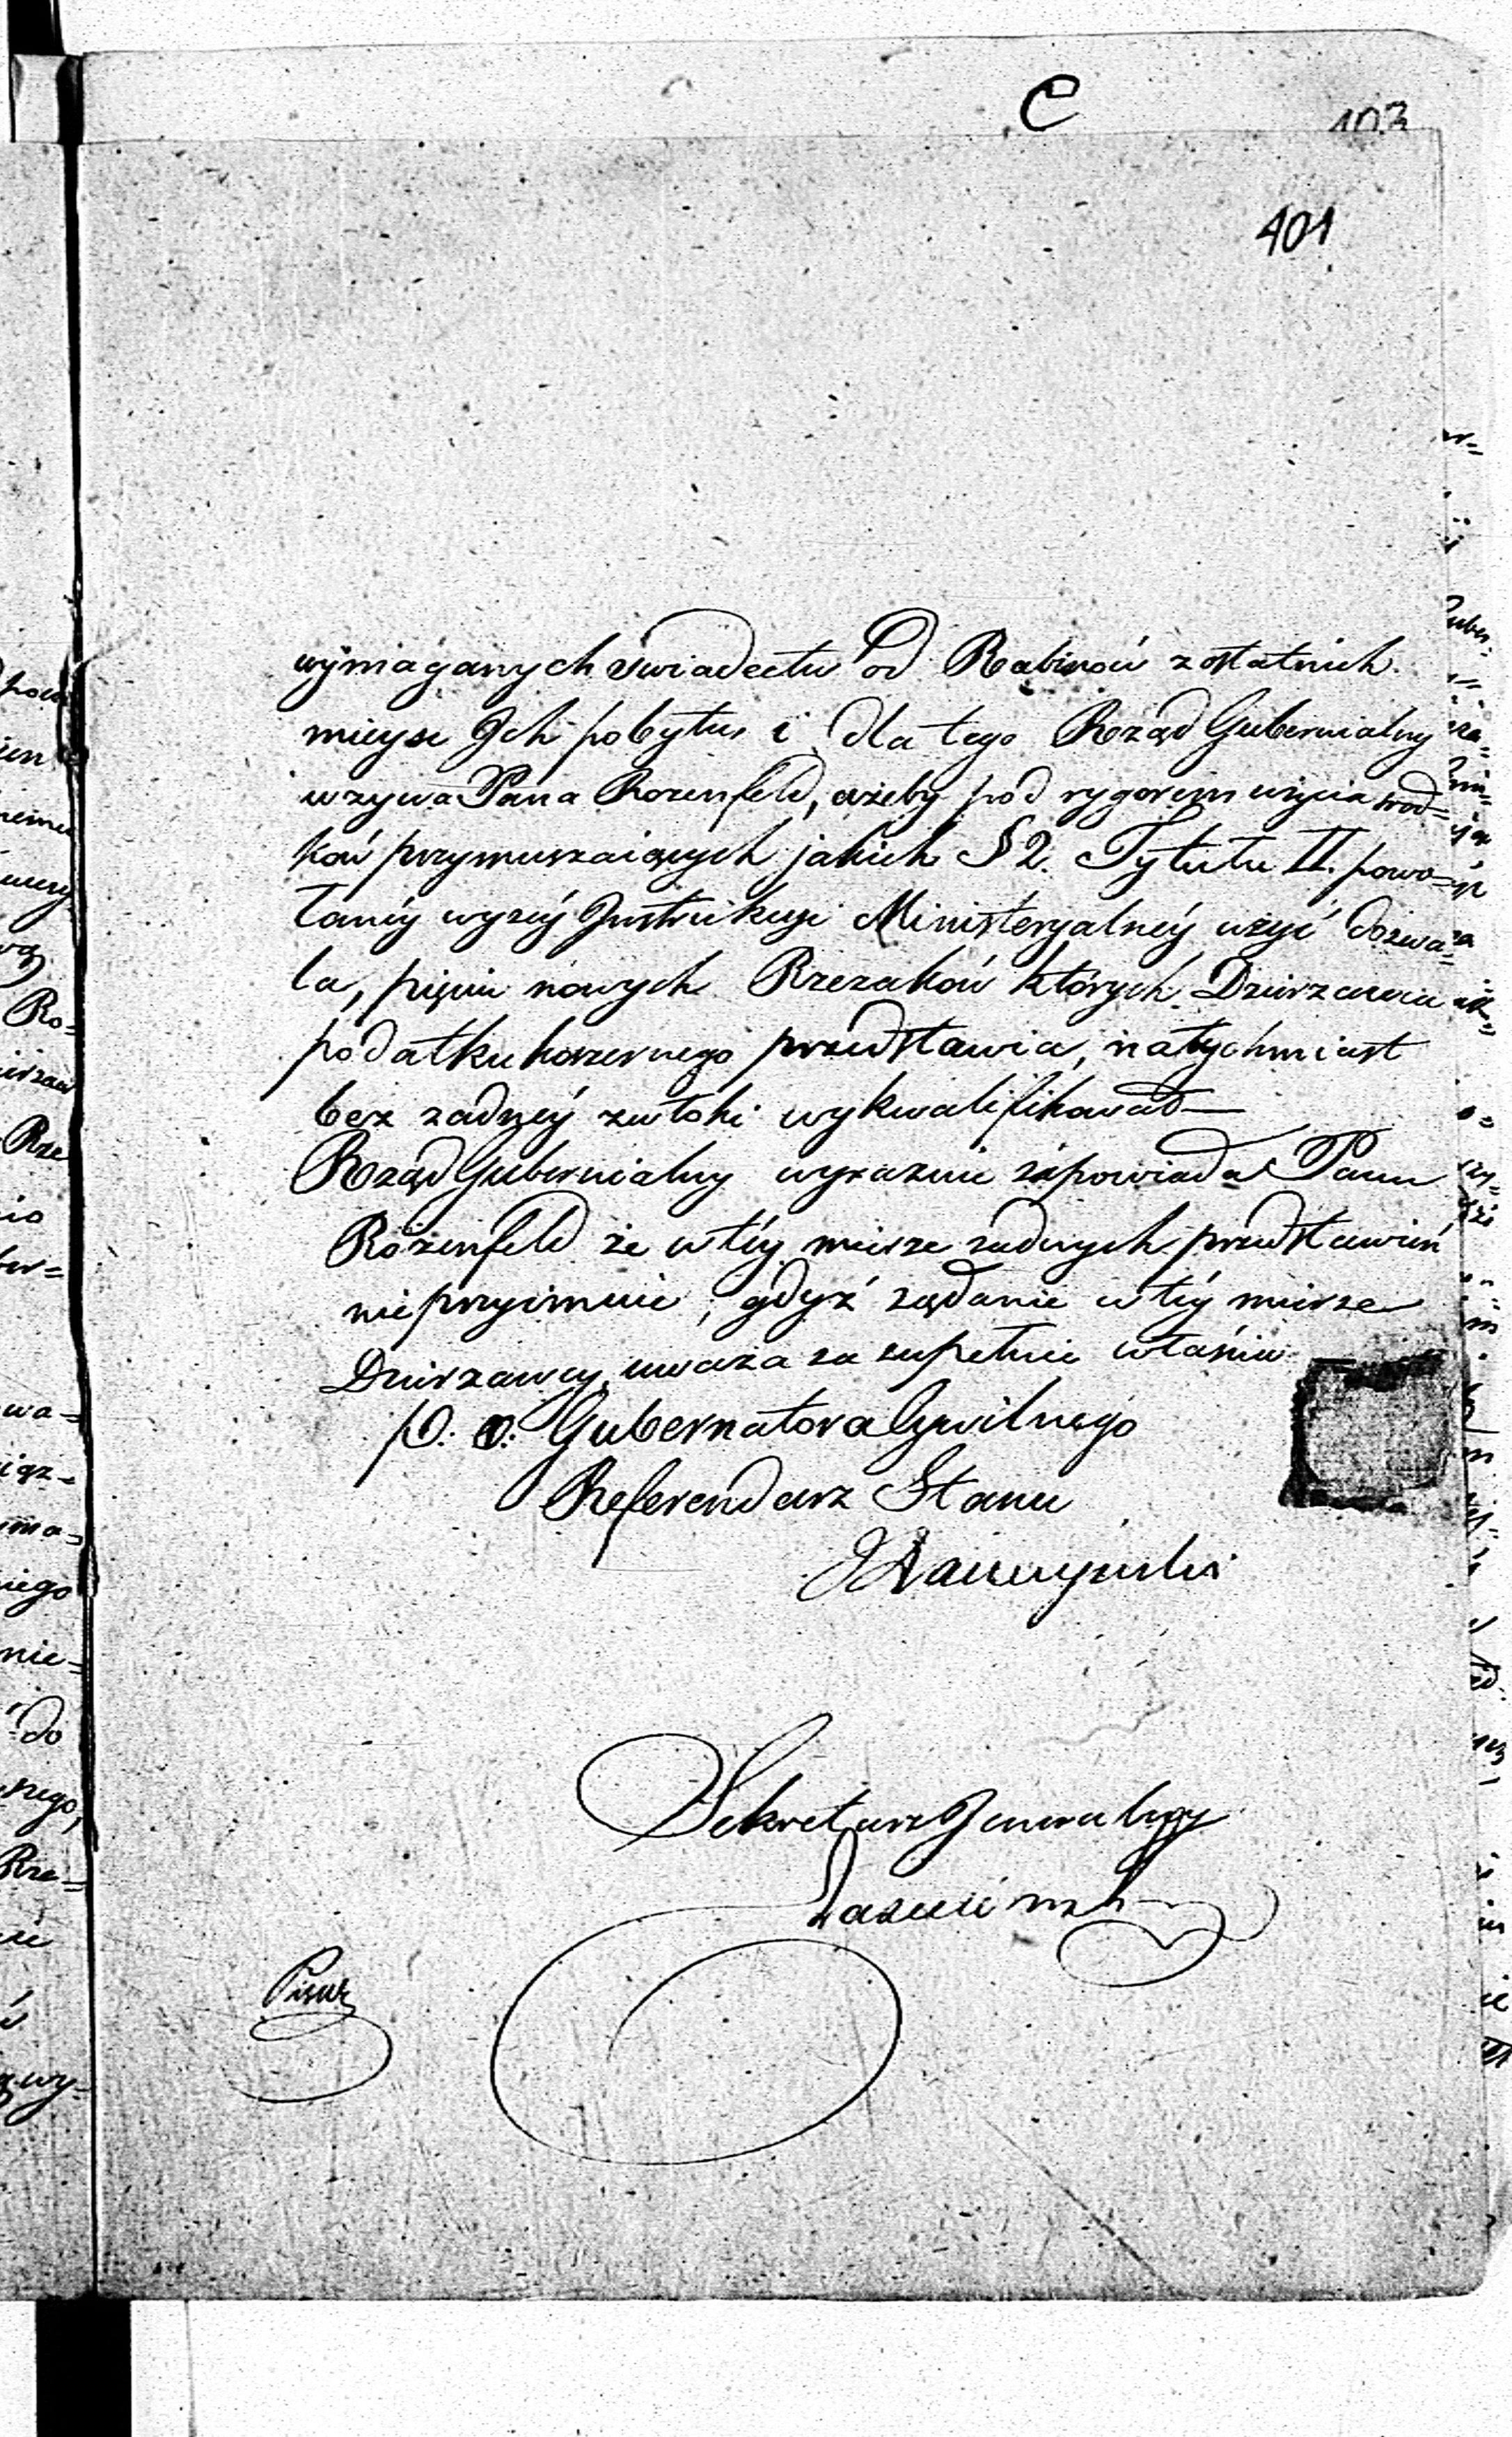 C
103
401
wymaganych swiadectw od Rabinów z ostatnich
mieysc Ich pobytu, i dla tego Rząd Gubernialny
wzywa Pana Rozenfeld, ażeby pod rygorem użycia srod=
ków przymuszaiących jakich § 2. Tytułu II. powo=
łaney wyzey Instrukcyi Ministeryalney użyć dozwa=
la, pięciu nowych Rzezaków których Dzierzawca
podatku koszernego przedstawia, natychmiast
bez zadney zwłoki wykwalifikował—
Rząd Gubernialny wyraznie zapowiada Panu
Rozenfeld że w tey mierze zadnych przedstawień
nieprzyimuie, gdyż ządanie w tey mierze
Dzierzawcy, uwaza za zupełnie właściwe
p. o. Gubernatora Cywilnego
Referendarz Stanu
Sekretarz Jeneralny
Pisarz